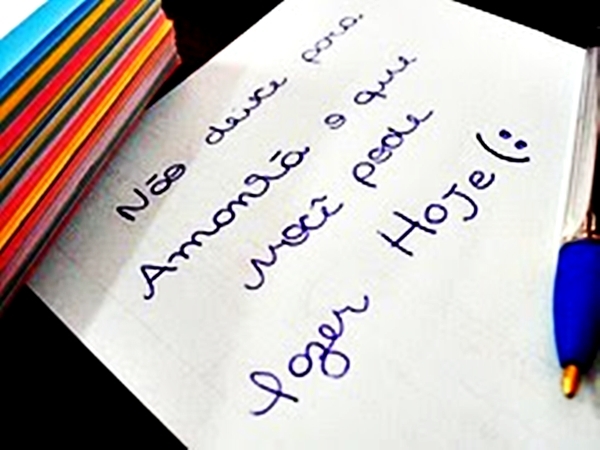 Não deixe para
Amanhã o que
você pode
fazer Hoje (: